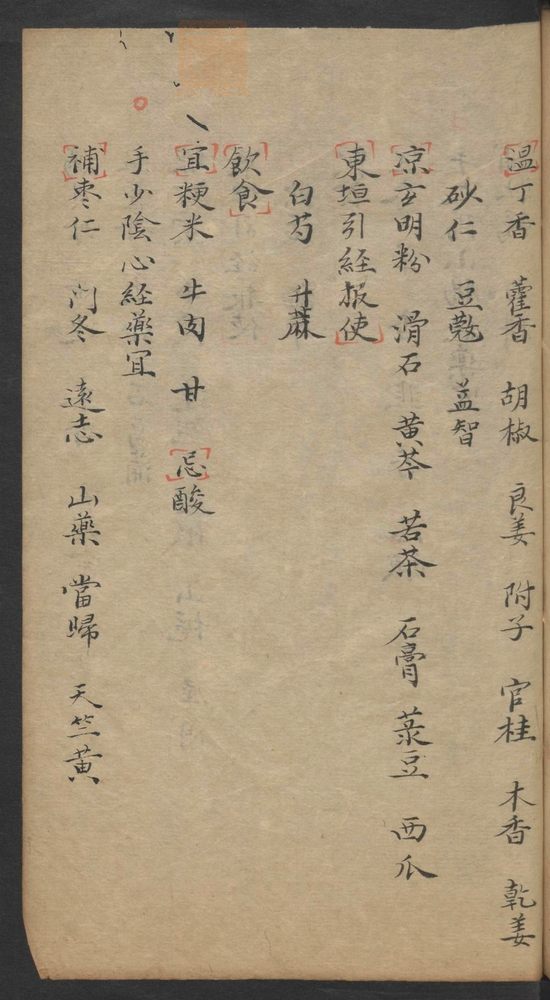 温丁香　藿香　胡椒　良姜　附子　官桂　木香　乾姜
砂仁　豆蔻　益智
凉玄明粉　滑石　黄芩　若茶　石膏　菉豆　西瓜
東垣引経报使
白芍　升蔴
飲食
宜粳米　牛肉　甘　忌酸
手少陰心経藥宜
補枣仁　门冬　遠志　山藥　當歸　天竺黄